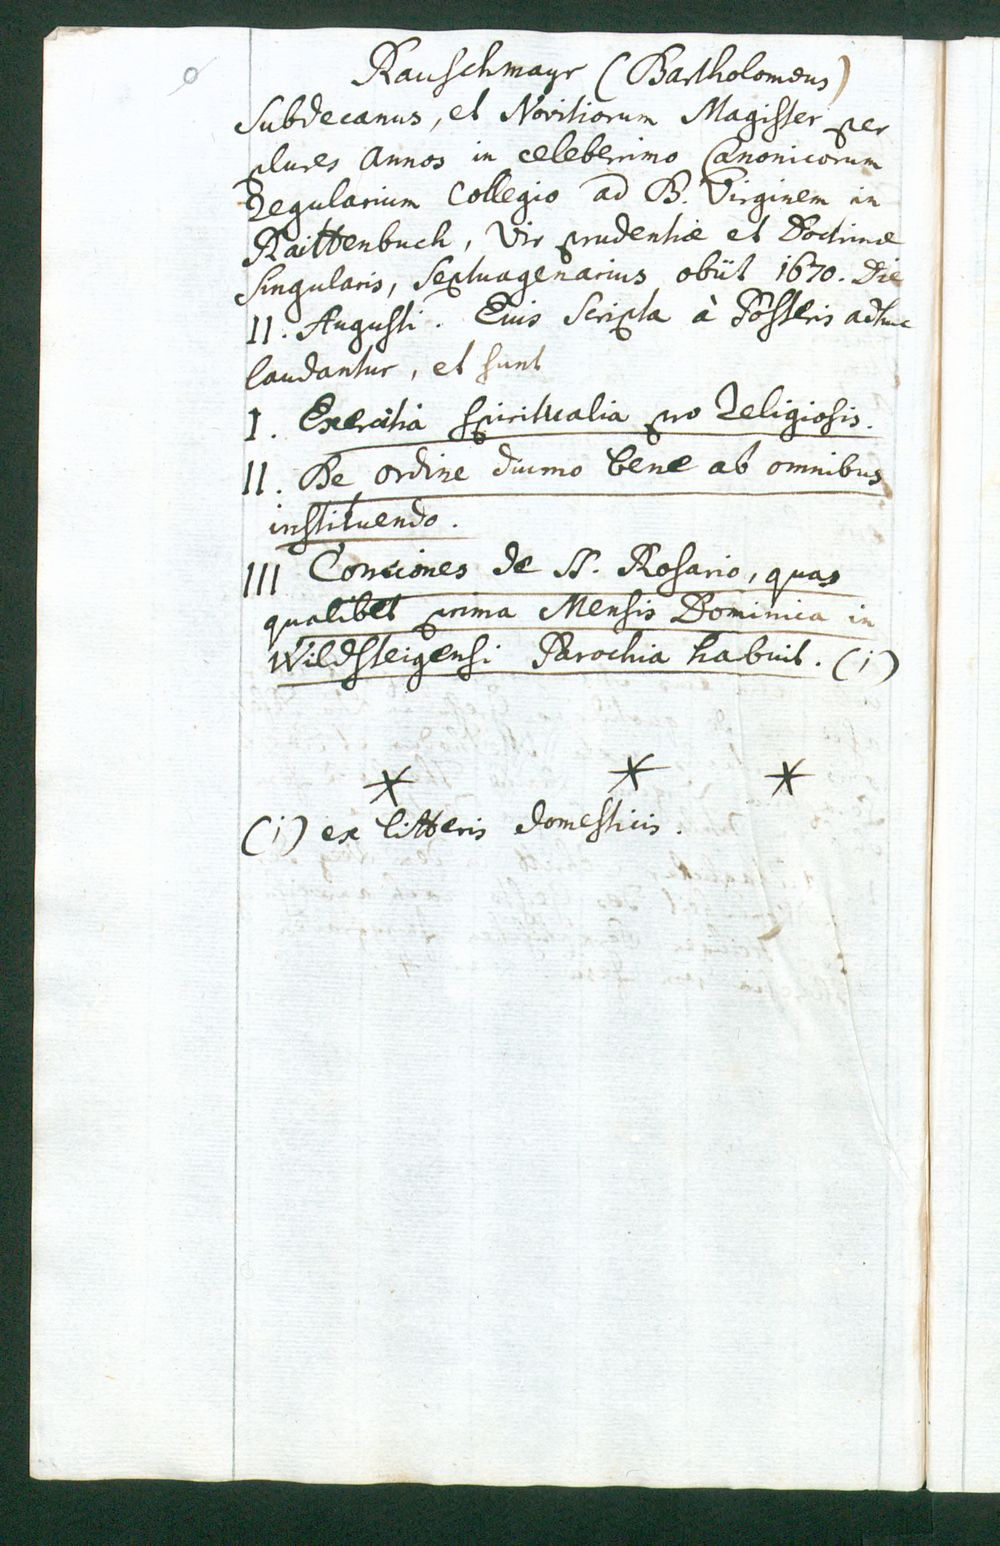 Rauschmayr (Bartholomæus)
Subdecanus, et Novitiorum Magister per
plures Annos in celeberrimo Canonicorum
Regularium Collegio ad B. Virginem in
Raittenbuch, Vir prudentiæ et Doctrinæ
singularis, septuagenarius obiit 1670. Die
11. Augusti. Eius scripta à Posteris adhuc
laudantur, et sunt
I. Exercitia spiritualia pro Religiosis.
II. De ordine diurno bene ab omnibus
instituendo.
III Conciones de SS. Rosario, quas
qualibet prima Mensis Dominica in
Wildsteigensi Parochia habuit. (i)
* * *
(i) ex litteris domesticis.